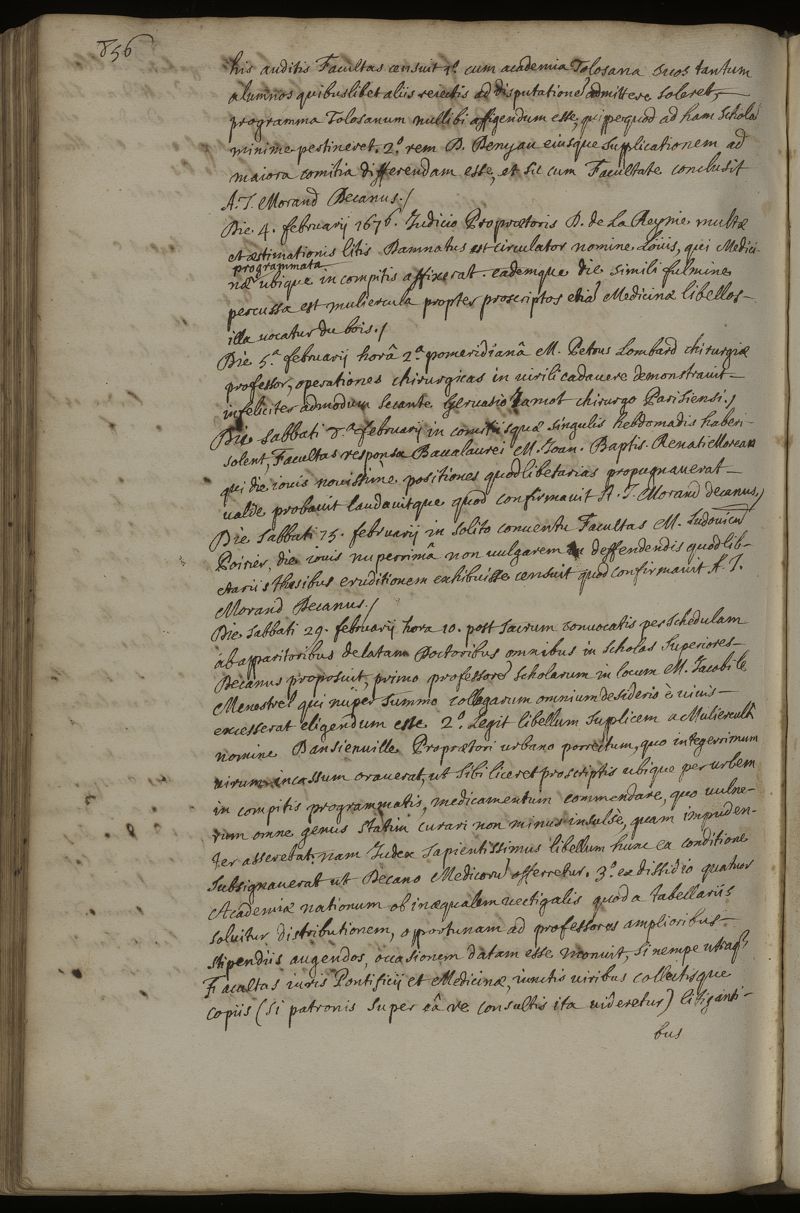 856
his auditis Facultas censuit 1.º cum academia Tolosana suos tantum
alumnos quibuslibet aliis reiectis ad disputationē admittere soleret,
programma Tolosanum nullibi affigendum esse, quippe quod ad hanc scholā
minime pertineret. 2.º rem D. Benyau eiusque supplicationem ad
maiora comitia differendam esse, et sic cum Facultate conclusit
A. J. Morand Decanus./
Die 4. februarij 1676. Judicio Proprætoris D. de La Reynie multæ
et æstimationis litis Damnatus est circulator nomine Louis, qui Medici-
programmata
næ ubique in compitis affixerat. eademque die simili fulmine
percussa est muliercula propter proscriptos etiā Medicinæ libellos-
illa uocatur du bois./
Die 5.ª februarij horâ 2.ª pomeridianâ M. Petrus Lombard chirurgiæ
professor, operationes chirurgicas in uirili cadauere demonstrauit-
infeliciter admodum secante Geruasio Jamot chirurgo Parisiensi./
Die sabbati 8.ª februarij in comitiis quæ singulis hebdomadis haberi-
solent, Facultas responsa Baccalaurei M. Joan. Baptis. Renati Moreau
qui die iouis nouissimè positiones quodlibetarias propugnauerat-
ualde probauit laudauitque quod confirmauit A. J. Morand decanus./
Die sabbati 15. februarij in solito conuentu Facultas M. Ludouicū
Poirier, die iouis nuperrimâ non uulgarem in deffendendis quodlib-
etariis thesibus eruditionem exhibuisse censuit quod confirmauit A. J.
Morand Decanus./
Die sabbati 29. februarij hora 10. post sacrum conuocatis per schedulam
ab apparitoribus delatam Doctoribus omnibus in scholas superiores-
Decanus proposuit, primo professorē scholarum in locum M. Jacobi le
Menestrel qui nuper summo collegarum omnium desiderio è uiuis-
excesserat eligendum esse. 2.º Legit libellum supplicem a Mulierculâ
nomine Bansienuille Proprætori urbano porrectum, quo integerrimum
uirum incassum orauerat, ut sibi liceret proscriptis ubique per urbem
in compitis programmatis, medicamentum commendare, quo uulne-
rum omne genus statim curari non minus insulsè, quam impruden-
ter asserebat; nam Judex sapientissimus libellum hunc ea conditione
subsignauerat ut Decano Medicorū offerretur. 3.º ex dissidio quatuor
Academiæ nationum ob inæqualem uectigalis quod a tabellariis
soluitur distributionem, opportunam ad professores amplioribus-
stipendiis augendos, occasionem datam esse monuit, si nempe utraqꝫ
Facultas iuris Pontificij et Medicinæ, iunctis uiribus collectisque
copiis (si patronis super eâ re consultis ita uideretur) litiganti-
bus